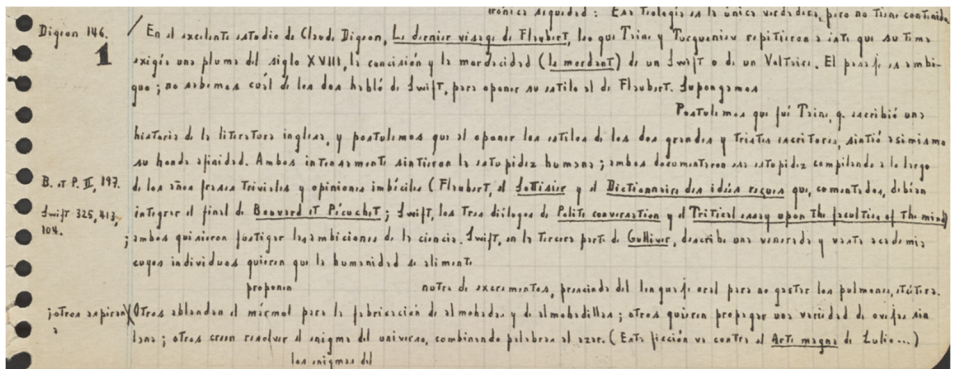 irónica seguridad: Esa Teología es la única verdadera, pero no Tiene contenido
Digeon 146.
1
En el excelente estudio de Claude Digeon, Le dernier visage de Flaubert, leo que Taine y Turgueniev repitieron a éste que su tema
exigía una pluma del siglo XVIII, la concisión y la mordacidad (le mordant) de un Swift o de un Voltaire. El pasaje es ambi-
guo; no sabemos cuál de los dos habló de Swift, para oponer su estilo al de Flaubert. Supongamos
Postulemos que fué Taine q. escribió una
historia de la literatura inglesa, y postulemos que al oponer los estilos de los dos grandes y tristes escritores, sintió asimismo
su honda afinidad. Ambos intensamente sintieron la estupidez humana; ambos documentaron esa estupidez compilando a lo largo
B. et P. II, 197.
de los años frases triviales y opiniones imbéciles (Flaubert, el Sottisier y el Dictionnaire des idées reçues que, comentados, debían
Swift 325, 413,
104.
integrar el final de Bouvard et Pécuchet; Swift, los Tres diálogos de Polite conversation y el Tritical essay upon the faculties of the mind)
; ambos quisieron fustigar las ambiciones de la ciencia. Swift, en la Tercera parte de Gulliver, describe una venerada y vasta academia
cuyos individuos quieren que la humanidad se alimente
proponen
nutra de excrementos, prescinda del lenguaje oral para no gastar los pulmones, etcétera.
; otros aspiran
a
Otros ablandan el mármol para la fabricación de almohadas y de almohadillas; otros quieren propagar una variedad de ovejas sin
lana; otros creen resolver el enigma del universo, combinando palabras al azar. (Esta ficción va contra el Arte magna de Lulio...)
los enigmas del